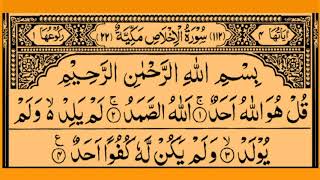 اٰیاتُهَا ٤ (١١٢) سُوْرَةُ الْاِخْلَاصِ مَكِّيَّةٌ (٢٢) رُكُوْعُهَا ١
بِسْمِ اللّٰهِ الرَّحْمٰنِ الرَّحِيْمِ
قُلْ هُوَ اللّٰهُ اَحَدٌ ۚ ١ اَللّٰهُ الصَّمَدُ ۚ ٢ لَمْ يَلِدْ ۙ۬ وَلَمْ
يُوْلَدْ ۙ ٣ وَلَمْ يَكُنْ لَّهٗ كُفُوًا اَحَدٌ ٤ ع